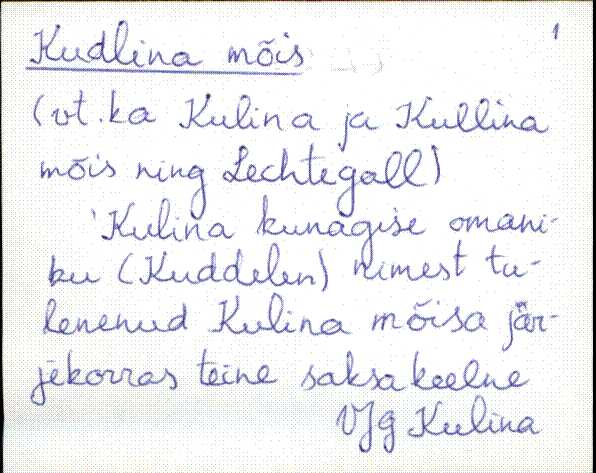 1
Kudlina mõis
(vt. ka Kulina ja Kullina
mõis ning Lechtegall)
Kulina kunagise omani-
ku (Kuddelen) nimest tu-
lenenud Kulina mõisa jär-
jekorras teine saksakeelne
VJg Kulina